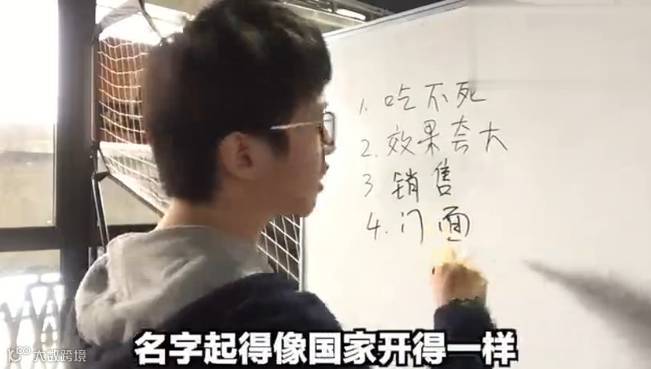 1. 吃不死
2. 效果夸大
3 销售
4. 门面
名字起得像国家开得一样
大数跨境